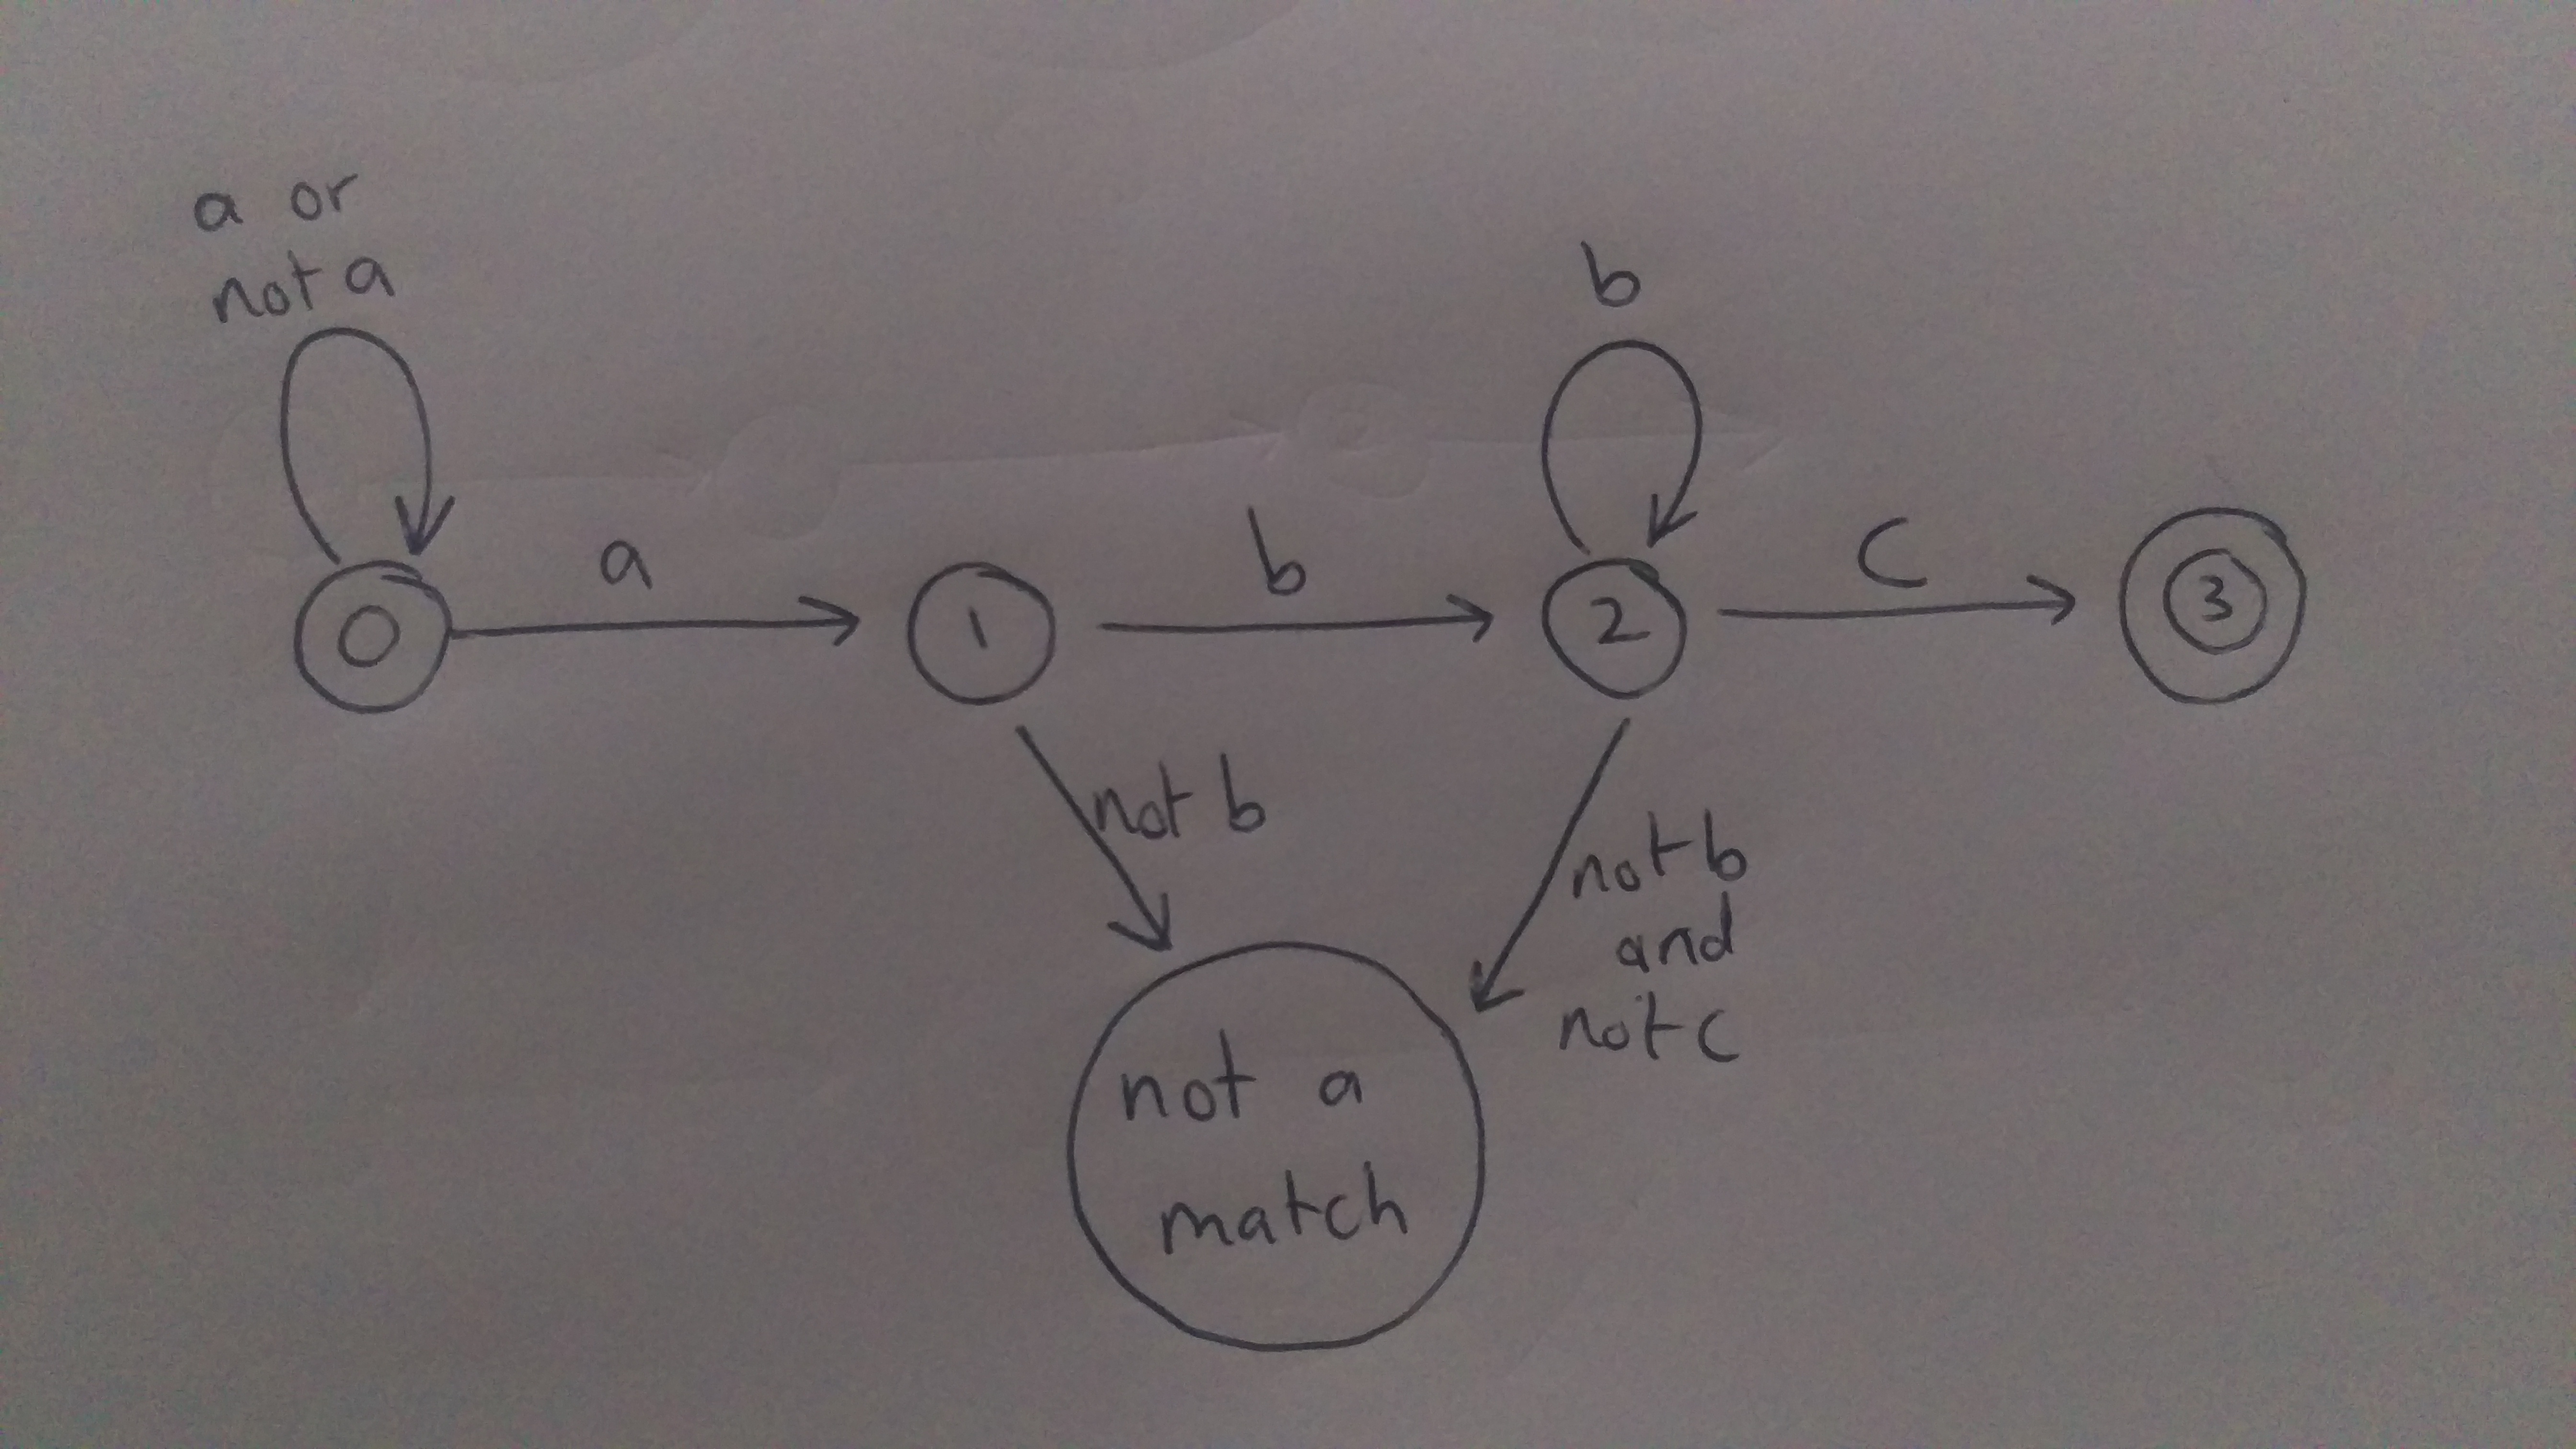 a or
not a
b
a
b
c
0
1
2
3
not b
not b
and
not c
not a
match